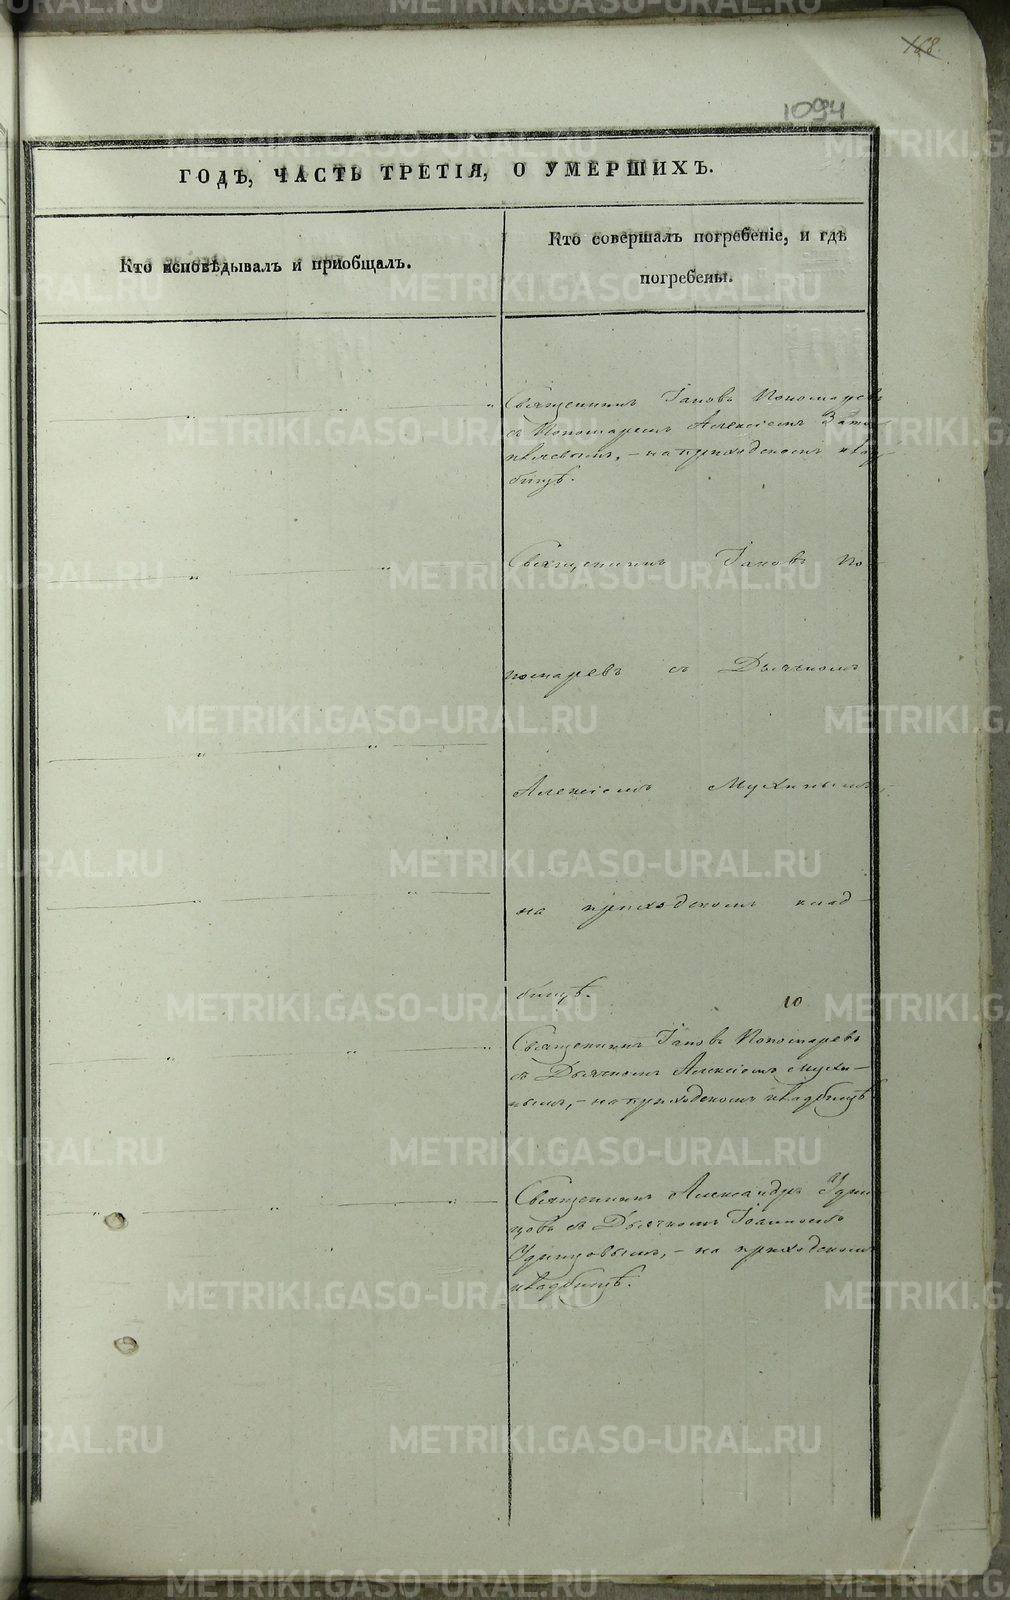 168.
1094
ГОДЪ, ЧАСТЬ ТРЕТІЯ, О УМЕРШИХЪ.
Кто исповѣдывалъ и приобщалъ.
Кто совершалъ погребеніе, и гдѣ
погребены.
Священникъ Іаковъ Пономаревъ
съ Пономаремъ Алексіемъ
– на приходскомъ клад-
бищѣ.
Священникъ Іаковъ По-
номаревъ съ Дьячкомъ
Алексіемъ Мухинымъ,
на приходскомъ клад-
бищѣ.
10
Священникъ Іаковъ Пономаревъ
съ Дьячкомъ Алексіемъ Мухи-
нымъ, – на приходскомъ кладбищѣ.
Священникъ Александръ Удин
цовъ съ Дьячкомъ Іоанномъ
Удинцовымъ, – на приходскомъ
кладбищѣ.
METRIKI.GASO-URAL.RU